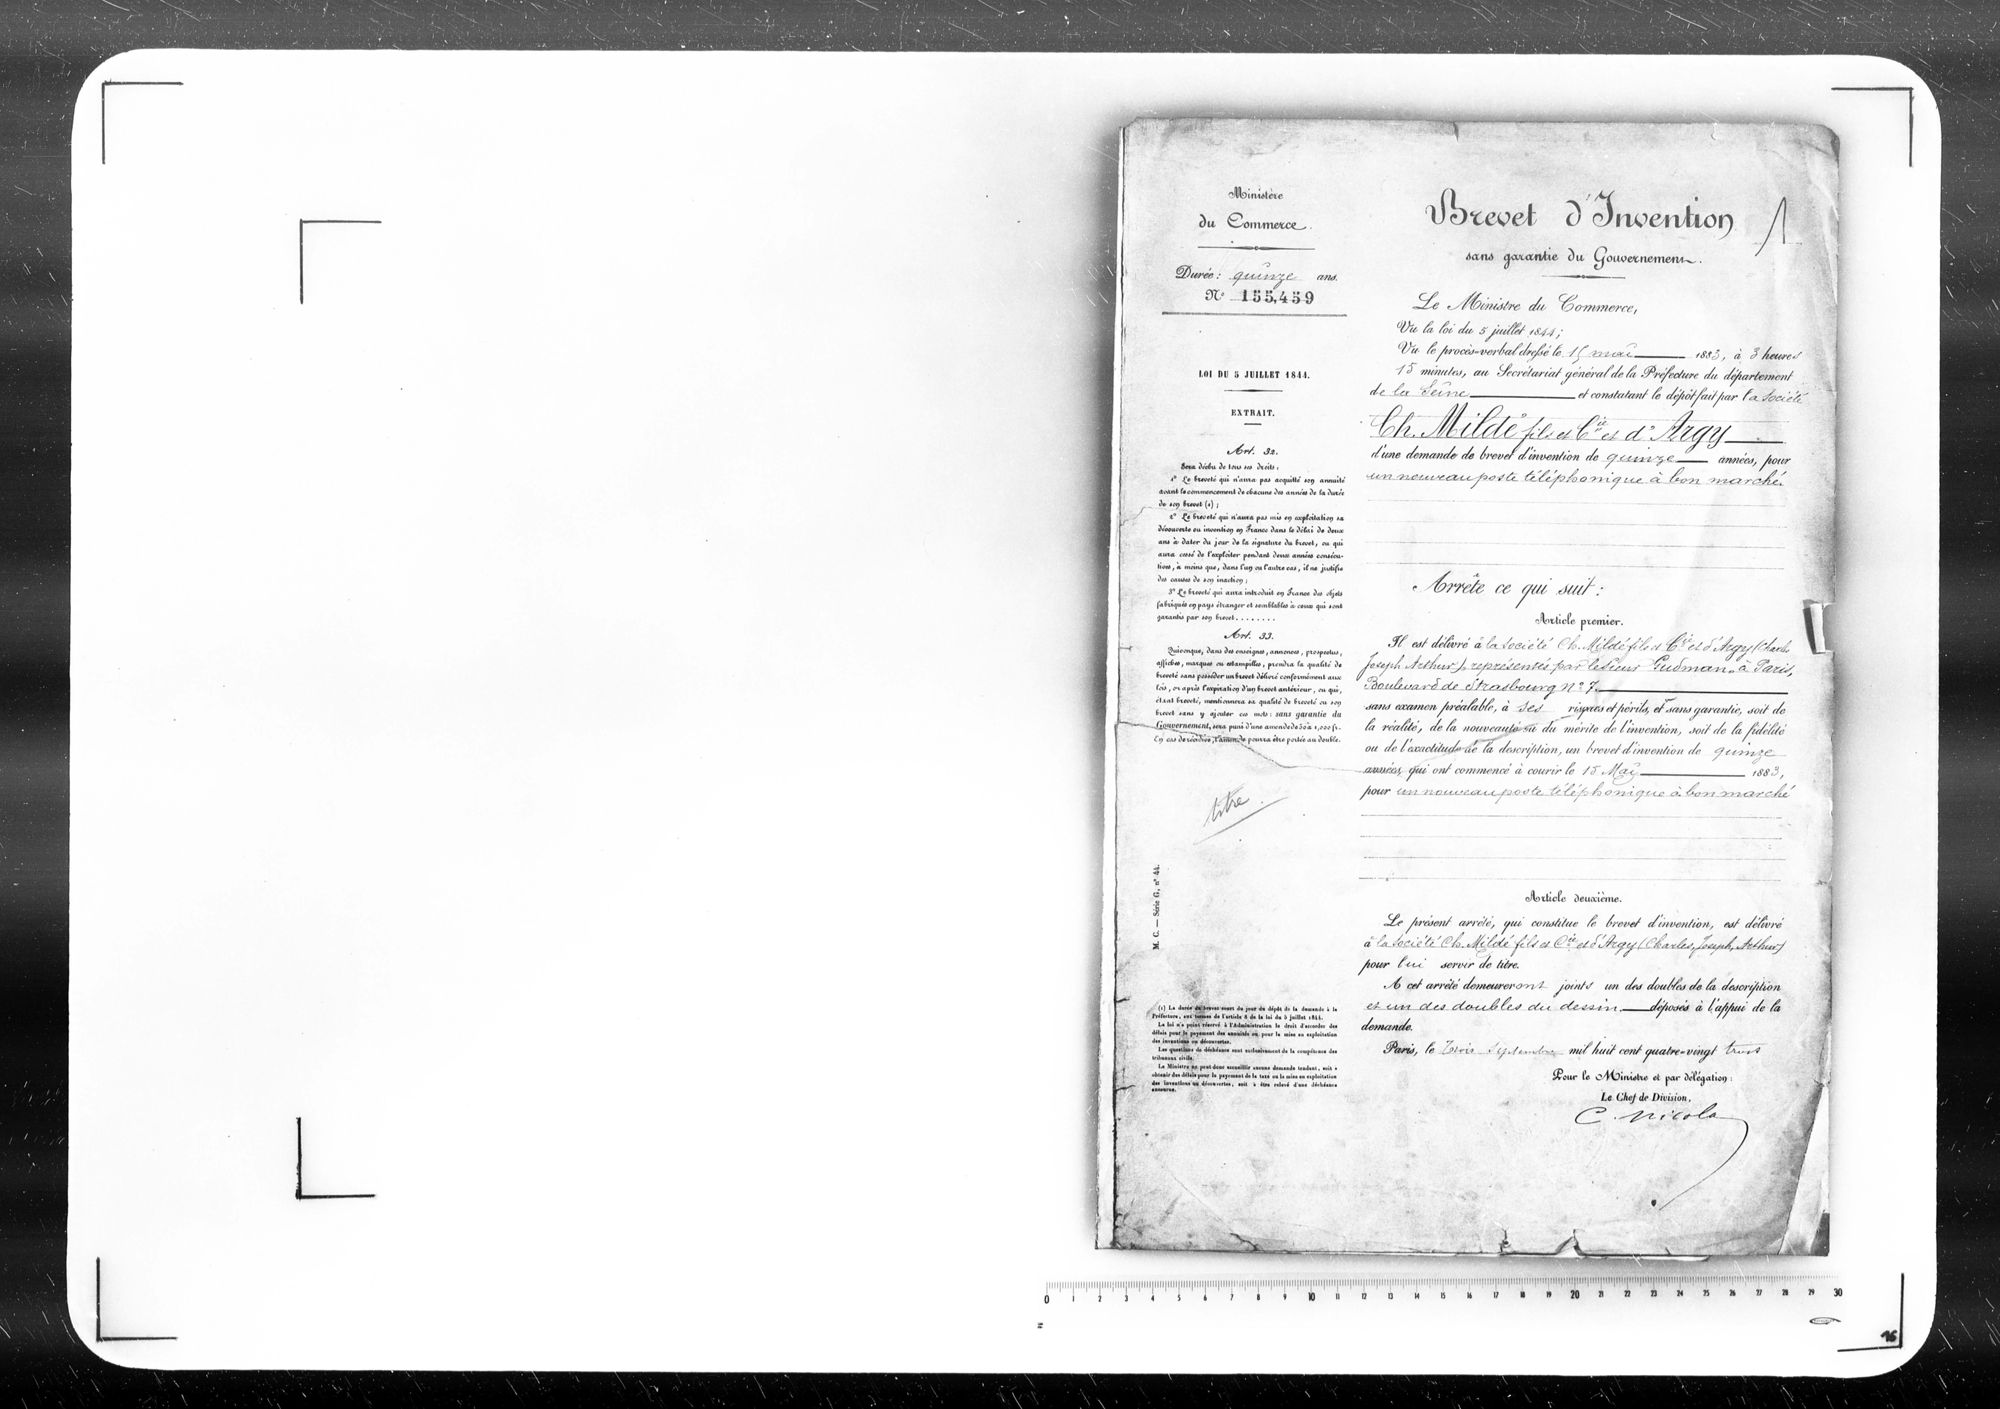 Ministère
du Commerce.
Durée : quinze ans.
N° 155,459
LOI DU 5 JUILLET 1844.
EXTRAIT.
Art. 32.
Sera déchu de tous ses droits :
1° Le breveté qui n'aura pas acquitté son annuité
avant le commencement de chacune des années de la durée
de son brevet (1) ;
2° Le breveté qui n'aura pas mis en exploitation sa
découverte ou invention en France dans le délai de deux
ans à dater du jour de la signature du brevet, ou qui
aura cessé de l'exploiter pendant deux années consécu-
tives, à moins que, dans l'un ou l'autre cas, il ne justifie
des causes de son inaction ;
3° Le breveté qui aura introduit en France des objets
fabriqués en pays étranger et semblables à ceux qui sont
garantis par son brevet........
Art. 33.
Quiconque, dans des enseignes, annonces, prospectus,
affiches, marques ou estampilles, prendra la qualité de
breveté sans posséder un brevet délivré conformément aux
lois, or après l'expiration d'un brevet antérieur, ou qui,
étant breveté, mentionnera sa qualité de breveté ou son
brevet sans y ajouter ces mots : sans garantie du
Gouvernement, sera puni d'une amende de 50 à 1,000 fr.
En cas de récidive, l'amende pourra être portée au double.
titre.
M. C. — Série G, n° 44.
(1) La durée du brevet court du jour du dépôt de la demande à la
Préfecture, aux termes de l'article 8 de la loi du 5 juillet 1844.
La loi n'a point réservé à l'Administration le droit d'accorder des
délais pour le payement des annuités ou pour la mise en exploitation
des inventions ou découvertes.
Les questions de déchéance sont exclusivement de la compétence des
tribunaux civils.
Le Ministre ne peut donc accueillir aucune demande tendant, soit à
obtenir des délais pour le payement de la taxe ou la mise en exploitation
des inventions ou découvertes, soit à être relevé d'une déchéance
encourue.
Brevet d'Invention
1
sans garantie du Gouvernement.
Le Ministre du Commerce,
Vu la loi du 5 juillet 1844 ;
Vu le procès-verbal dressé le 15 mai 1883, à 3 heures
15 minutes, au Secrétariat général de la Préfecture du département
de la Seine et constatant le dépôt fait par la Société
Ch. Mildé fils et Cie et d'Argy
d'une demande de brevet d'invention de quinze années, pour
un nouveau poste téléphonique à bon marché.
Arrête ce qui suit :
Article premier.
Il est délivré à la Société Ch. Mildé fils et Cie et d'Argy (Charles
Joseph Arthur), représentés par le Sieur Gudman, à Paris,
Boulevard de Strasbourg N° 7.
sans examen préalable, à ses risques et périls, et sans garantie, soit de
la réalité, de la nouveauté ou du mérite de l'invention, soit de la fidélité
ou de l'exactitude de la description, un brevet d'invention de quinze
années, qui ont commencé à courir le 15 Mai 1883,
pour un nouveau poste téléphonique à bon marché
Article deuxième.
Le présent arrêté, qui constitue le brevet d'invention, est délivré
à la Société Ch. Mildé fils et Cie et d'Argy (Charles, Joseph, Arthur)
pour lui servir de titre.
A cet arrêté demeureront joints un des doubles de la description
et un des doubles du dessin déposés à l'appui de la
demande.
Paris, le trois Septembre mil huit cent quatre-vingt trois
Pour le Ministre et par délégation :
Le Chef de Division,
C. Nicola
0 1 2 3 4 5 6 7 8 9 10 11 12 13 14 15 16 17 18 19 20 21 22 23 24 25 26 27 28 29 30
16